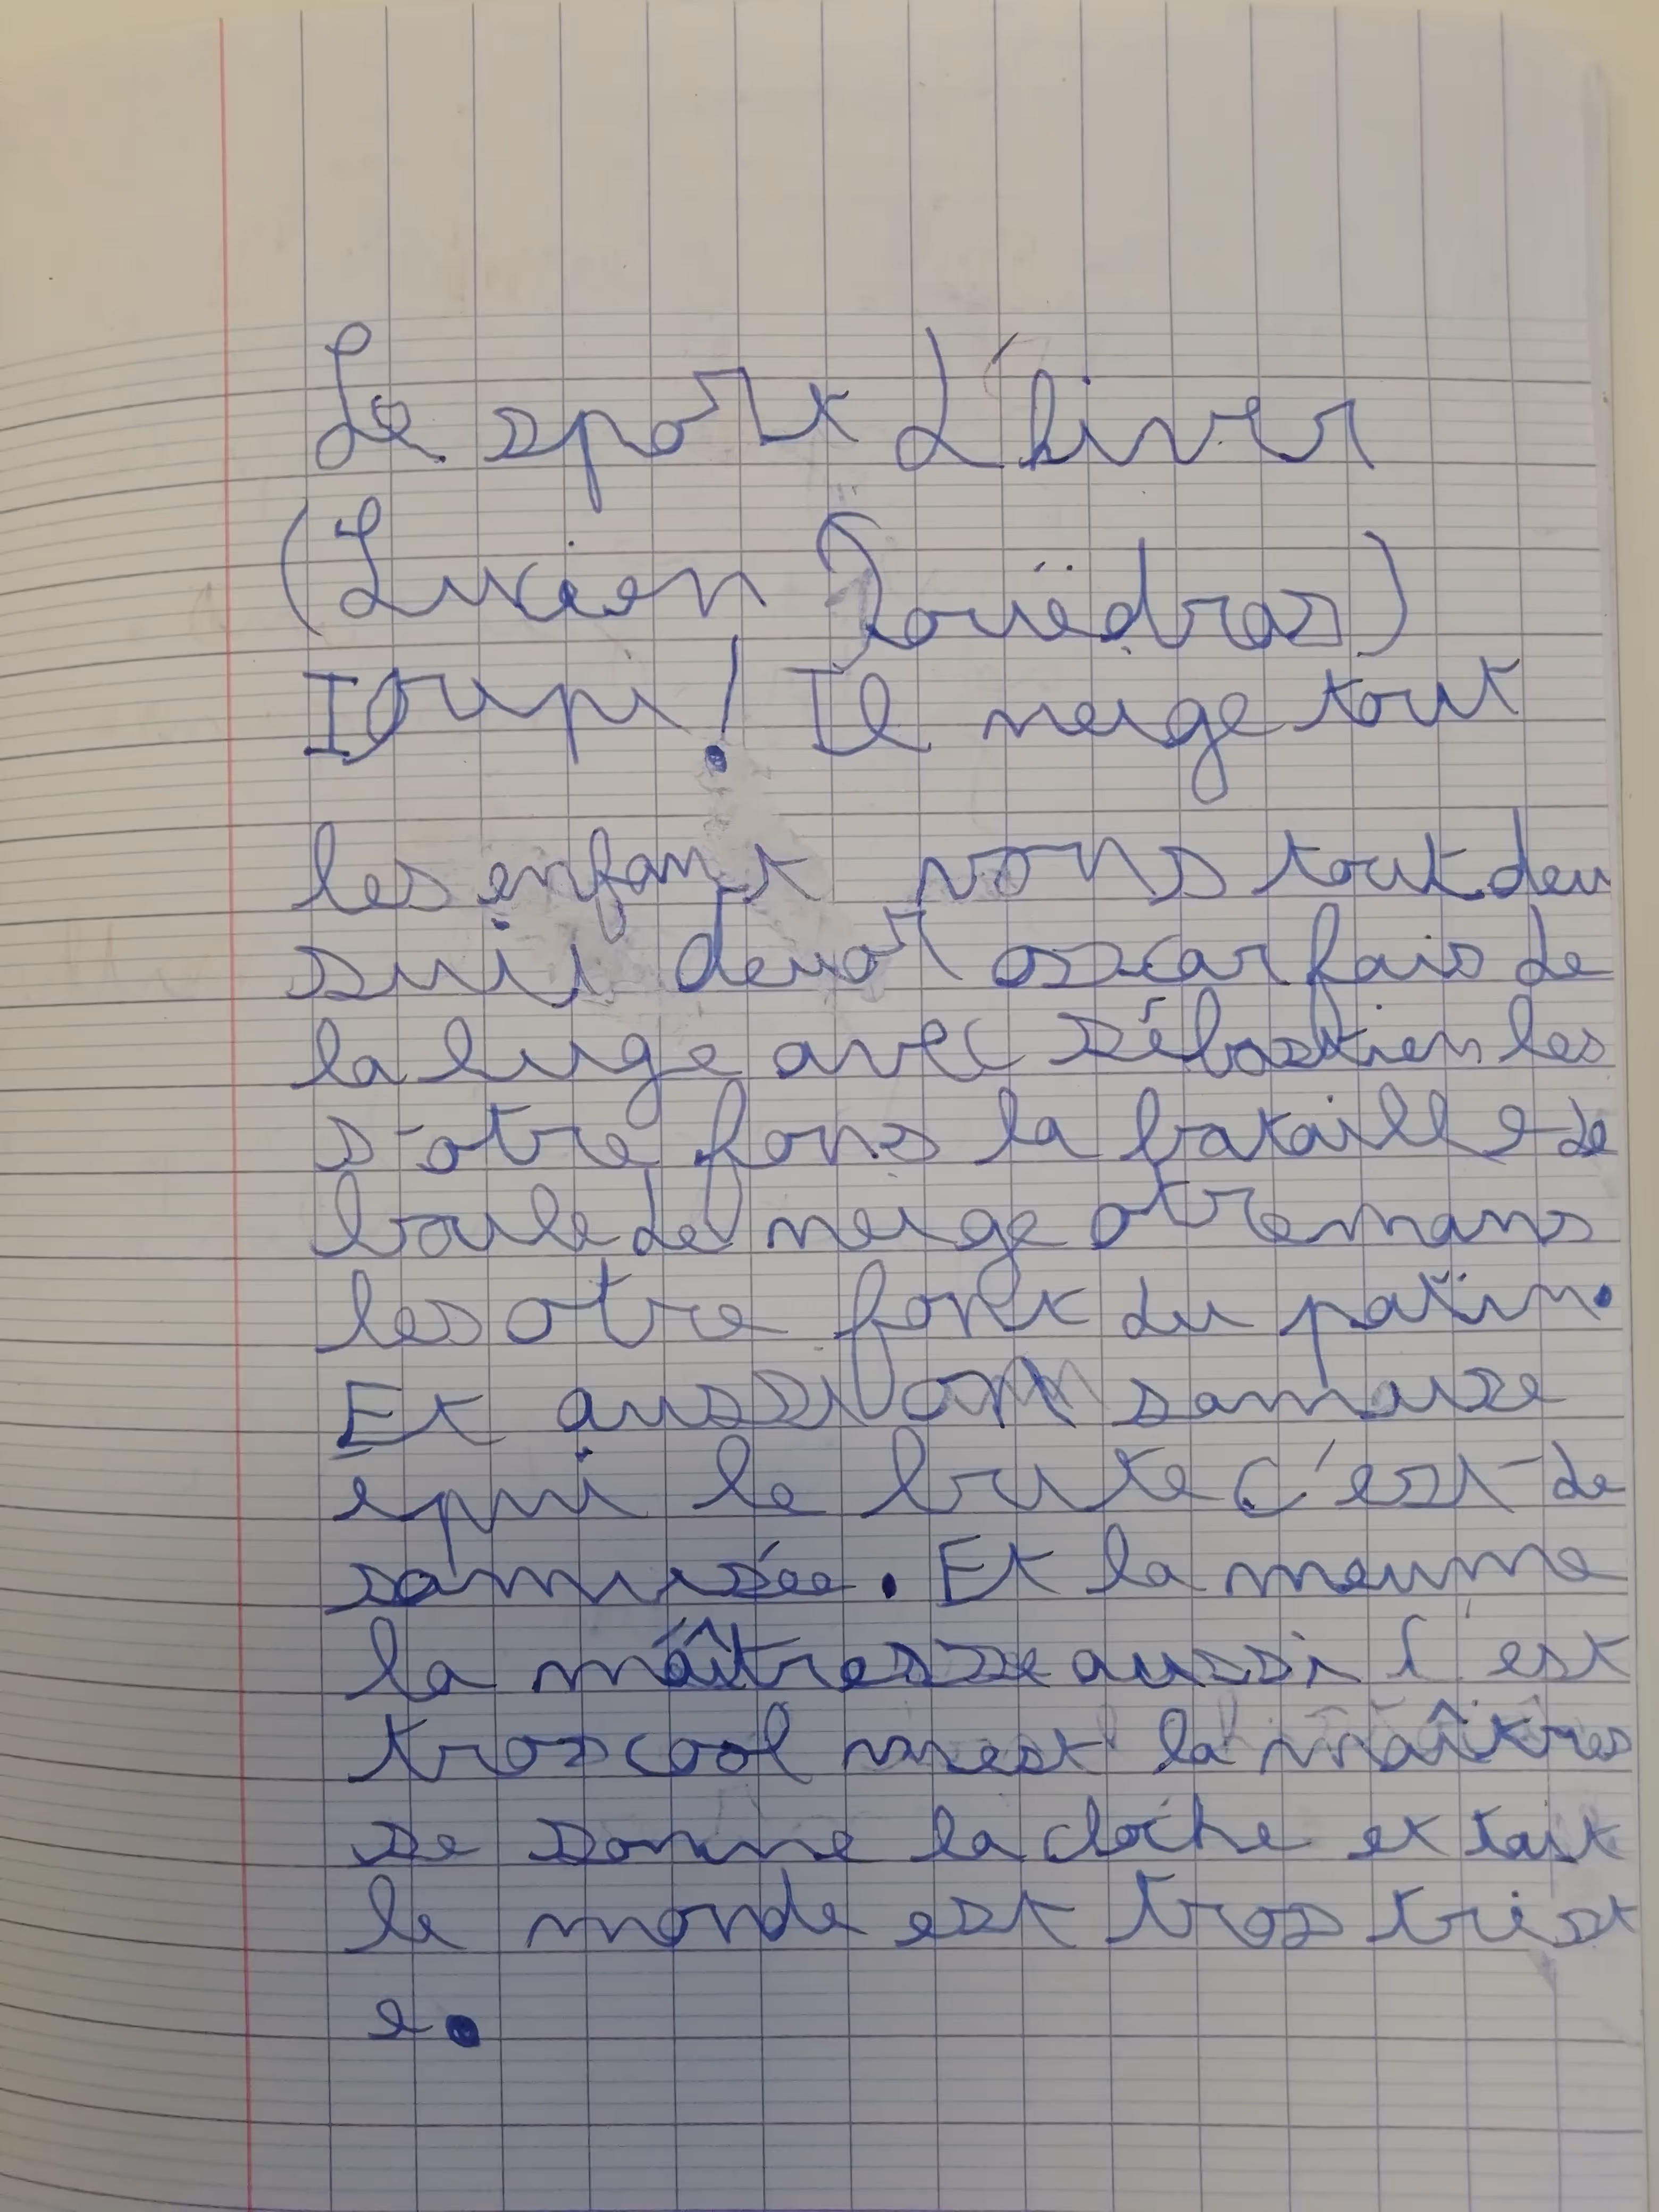 Le sport d'hiver
(Lucien Rouëdras)
Ioupi! Il neige tout
les enfant vons tout deu
suit deuor oscar fais de
la luge avec Sébastien les
s-otre fons la bataille de
boule de neige otremans
les otre font du patin.
Et aussi on samuse
epui le bute c'est de
samusée. Et la meume
la maîtresse aussi c'est
tros cool mest la maîtres
se sonne la cloche et tait
le monde est tros trist
e.